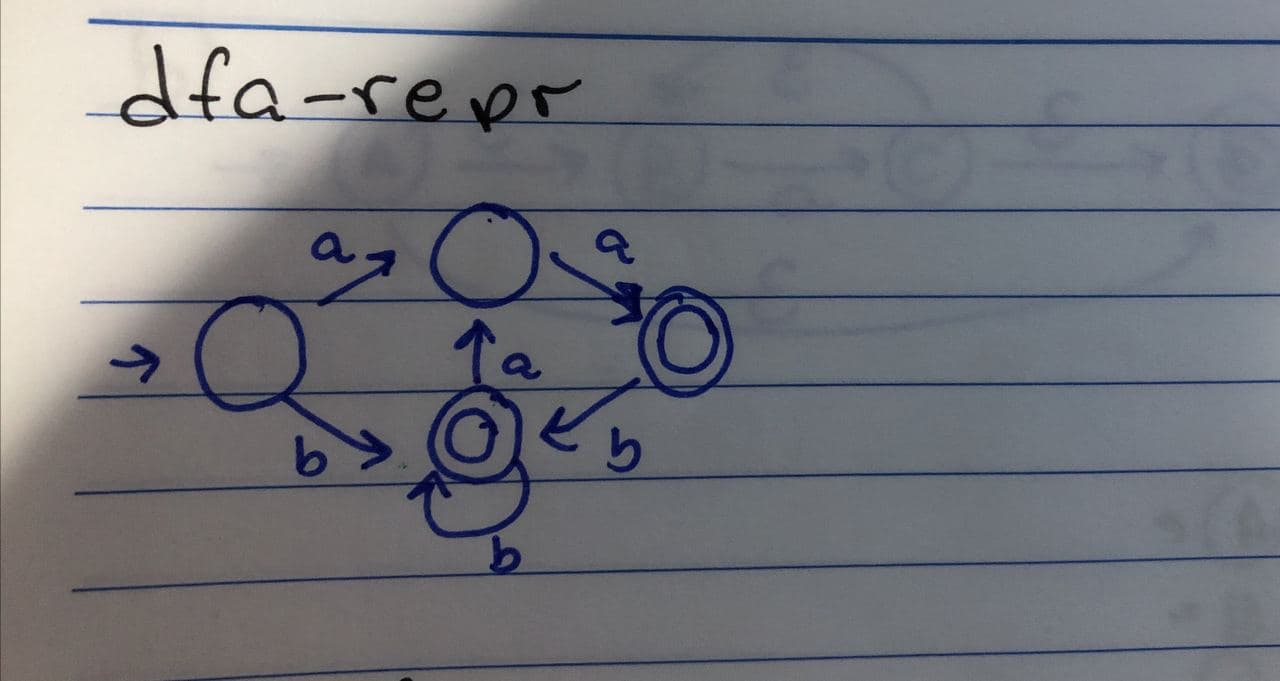 dfa-repr
a a
a
b b
b